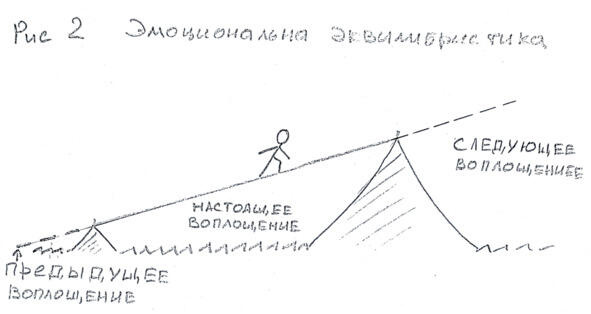 Рис 2 Эмоциональна эквилибристика
СЛЕДУЮЩЕЕ
ВОПЛОЩЕНИЕЕ
НАСТОАЩЕЕ
ВОПЛОЩЕНИЕ
ПРЕДЫДУЩЕЕ
ВОПЛОЩЕНИЕ